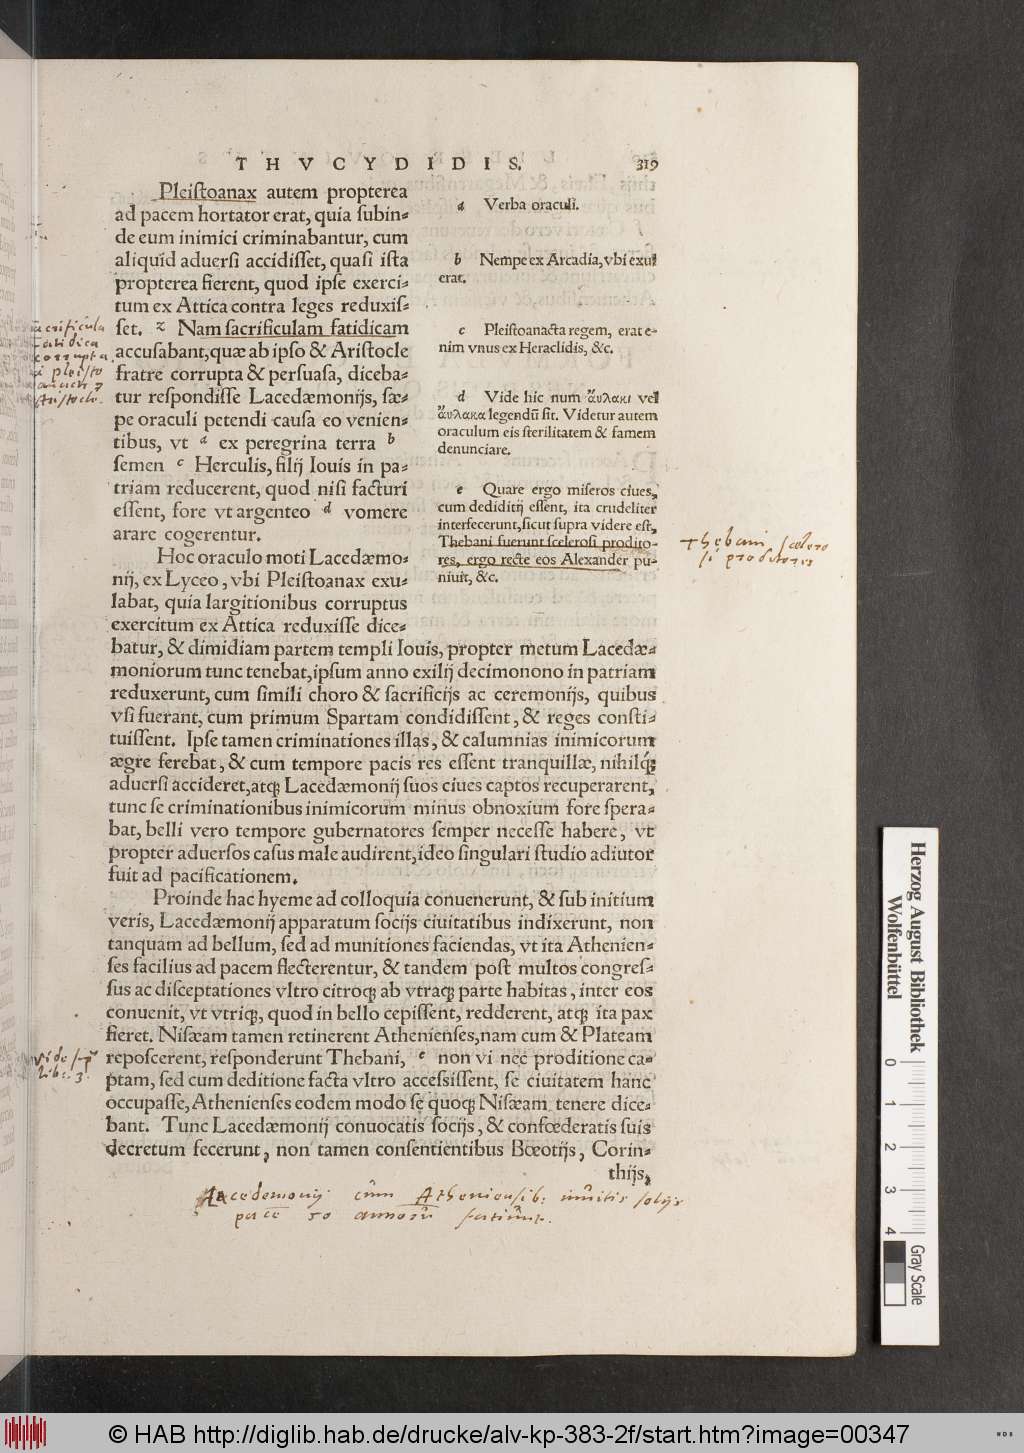 THVCYDIDIS. 319
Pleiſtoanax autem propterea
ad pacem hortator erat, quia ſubin⸗
de eum inimici criminabantur, cum
aliquid aduerſi accidiſſet, quaſi iſta
propterea fierent, quod ipſe exerci⸗
tum ex Attica contra leges reduxiſ⸗
ſet. z Nam ſacrificulam fatidicam
accuſabant, quæ ab ipſo & Ariſtocle
fratre corrupta & perſuaſa, diceba⸗
tur reſpondiſſe Lacedæmonijs, ſæ⸗
pe oraculi petendi cauſa eo venien⸗
tibus, vt a ex peregrina terra b
ſemen c Herculis, filij Iouis in pa⸗
triam reducerent, quod niſi facturi
eſſent, fore vt argenteo d vomere
arare cogerentur.
Hoc oraculo moti Lacedæmo⸗
nij, ex Lyceo, vbi Pleiſtoanax exu⸗
labat, quia largitionibus corruptus
exercitum ex Attica reduxiſſe dice⸗
batur, & dimidiam partem templi Iouis, propter metum Lacedæ⸗
moniorum tunc tenebat, ipſum anno exilij decimonono in patriam
reduxerunt, cum ſimili choro & ſacrificijs ac ceremonijs, quibus
vſi fuerant, cum primum Spartam condidiſſent, & reges conſti⸗
tuiſſent. Ipſe tamen criminationes illas, & calumnias inimicorum
ægre ferebat, & cum tempore pacis res eſſent tranquillæ, nihilq́;
aduerſi accideret, atq; Lacedæmonij ſuos ciues captos recuperarent,
tunc ſe criminationibus inimicorum minus obnoxium fore ſpera⸗
bat, belli vero tempore gubernatores ſemper neceſſe habere, vt
propter aduerſos caſus male audirent, ideo ſingulari ſtudio adiutor
fuit ad pacificationem.
Proinde hac hyeme ad colloquia conuenerunt, & ſub initium
veris, Lacedæmonij apparatum ſocijs ciuitatibus indixerunt, non
tanquam ad bellum, ſed ad munitiones faciendas, vt ita Athenien⸗
ſes facilius ad pacem flecterentur, & tandem poſt multos congreſ⸗
ſus ac diſceptationes vltro citroq; ab vtraq; parte habitas, inter eos
conuenit, vt vtriq;, quod in bello cepiſſent, redderent, atq; ita pax
fieret. Niſæam tamen retinerent Athenienſes, nam cum & Plateam
repoſcerent, reſponderunt Thebani, e non vi nec proditione ca⸗
ptam, ſed cum deditione facta vltro acceſsiſſent, ſe ciuitatem hanc
occupaſſe, Athenienſes eodem modo ſe quoq; Niſæam tenere dice⸗
bant. Tunc Lacedæmonij conuocatis ſocijs, & confœderatis ſuis
decretum fecerunt, non tamen conſentientibus Bœotijs, Corin⸗
thijs,
a Verba oraculi.
b Nempe ex Arcadia, vbi exul
erat.
c Pleiſtoanacta regem, erat e⸗
nim vnus ex Heraclidis, &c.
d Vide hic num ἄυλακι vel
ἄυλακα legendū ſit. Videtur autem
oraculum eis ſterilitatem & famem
denunciare.
e Quare ergo miſeros ciues,
cum dedidirij eſſent, ita crudeliter
interfecerunt, ſicut ſupra videre eſt,
Thebani fuerunt ſceleroſi prodito⸗
res, ergo recte eos Alexander pu⸗
niuit, &c.
fatidica
corrupta
a pleiſto
Aristocle.
Thebani ſcelero
ſi proditores
Vide
lib: 3.
Lacedemonij cūm Atheniensib: inuitis ſocijs
pacē 50 annorū
Herzog August Bibliothek
Wolfenbüttel
0 1 2 3 4
Gray Scale
© HAB http://diglib.hab.de/drucke/alv-kp-383-2f/start.htm?image=00347